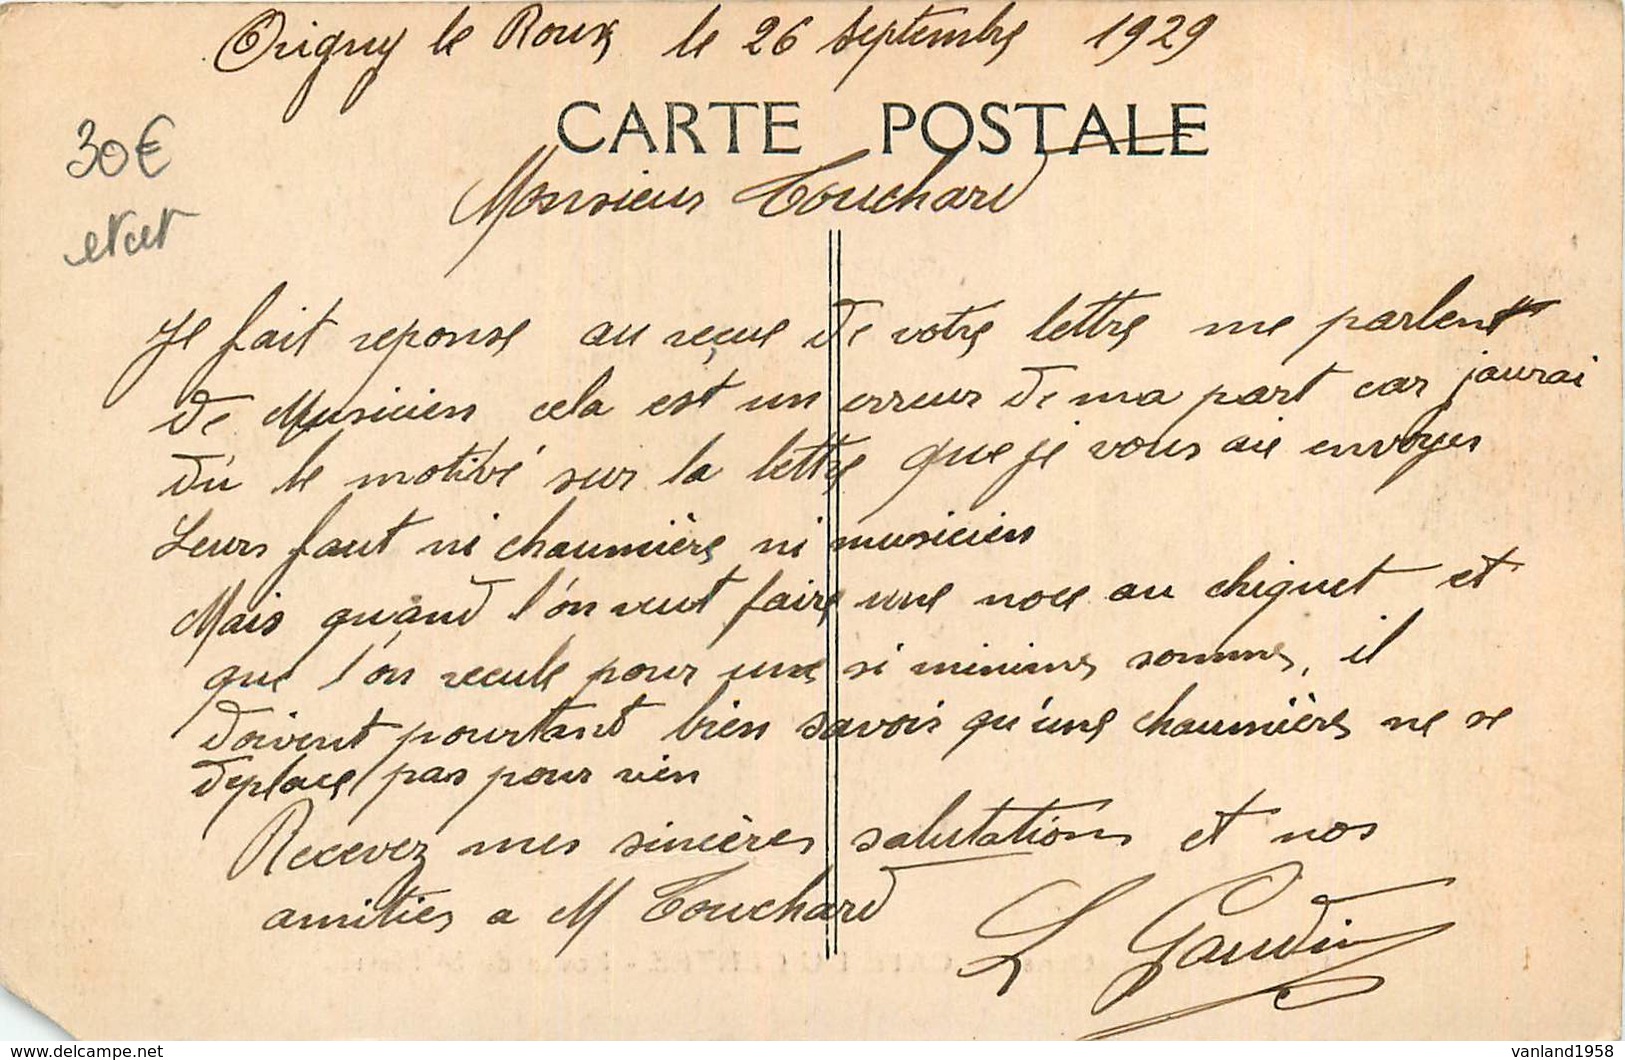 Origny le Roux le 26 Septembre 1929
CARTE POSTALE
30€
Monsieur Touchard
Je fait reponse au reçue de votre lettre me parlent
de Musicien cela est un erreur de ma part car jaurai
dû le motivé sur la lettre que je vous aie envoyer
Leurs faut ni chaumière ni musicien
Mais quand l'on veut faire une noce au chiquet et
que l'on recule pour une si minime somme, il
doivent pourtant bien savoir qu'une chaumière ne se
deplace pas pour rien
Recevez mes sincères salutations et nos
amities a M Touchard
L Gaudin
vanland1958